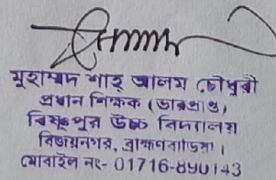 মুহাম্মদ শাহ্ আলম চৌধুরী
প্রধান শিক্ষক (ভারপ্রাপ্ত)
বিষ্ণুপুর উচ্চ বিদ্যালয়
বিজয়নগর, ব্রাহ্মণবাড়িয়া।
মোবাইল নং- 01716-890143